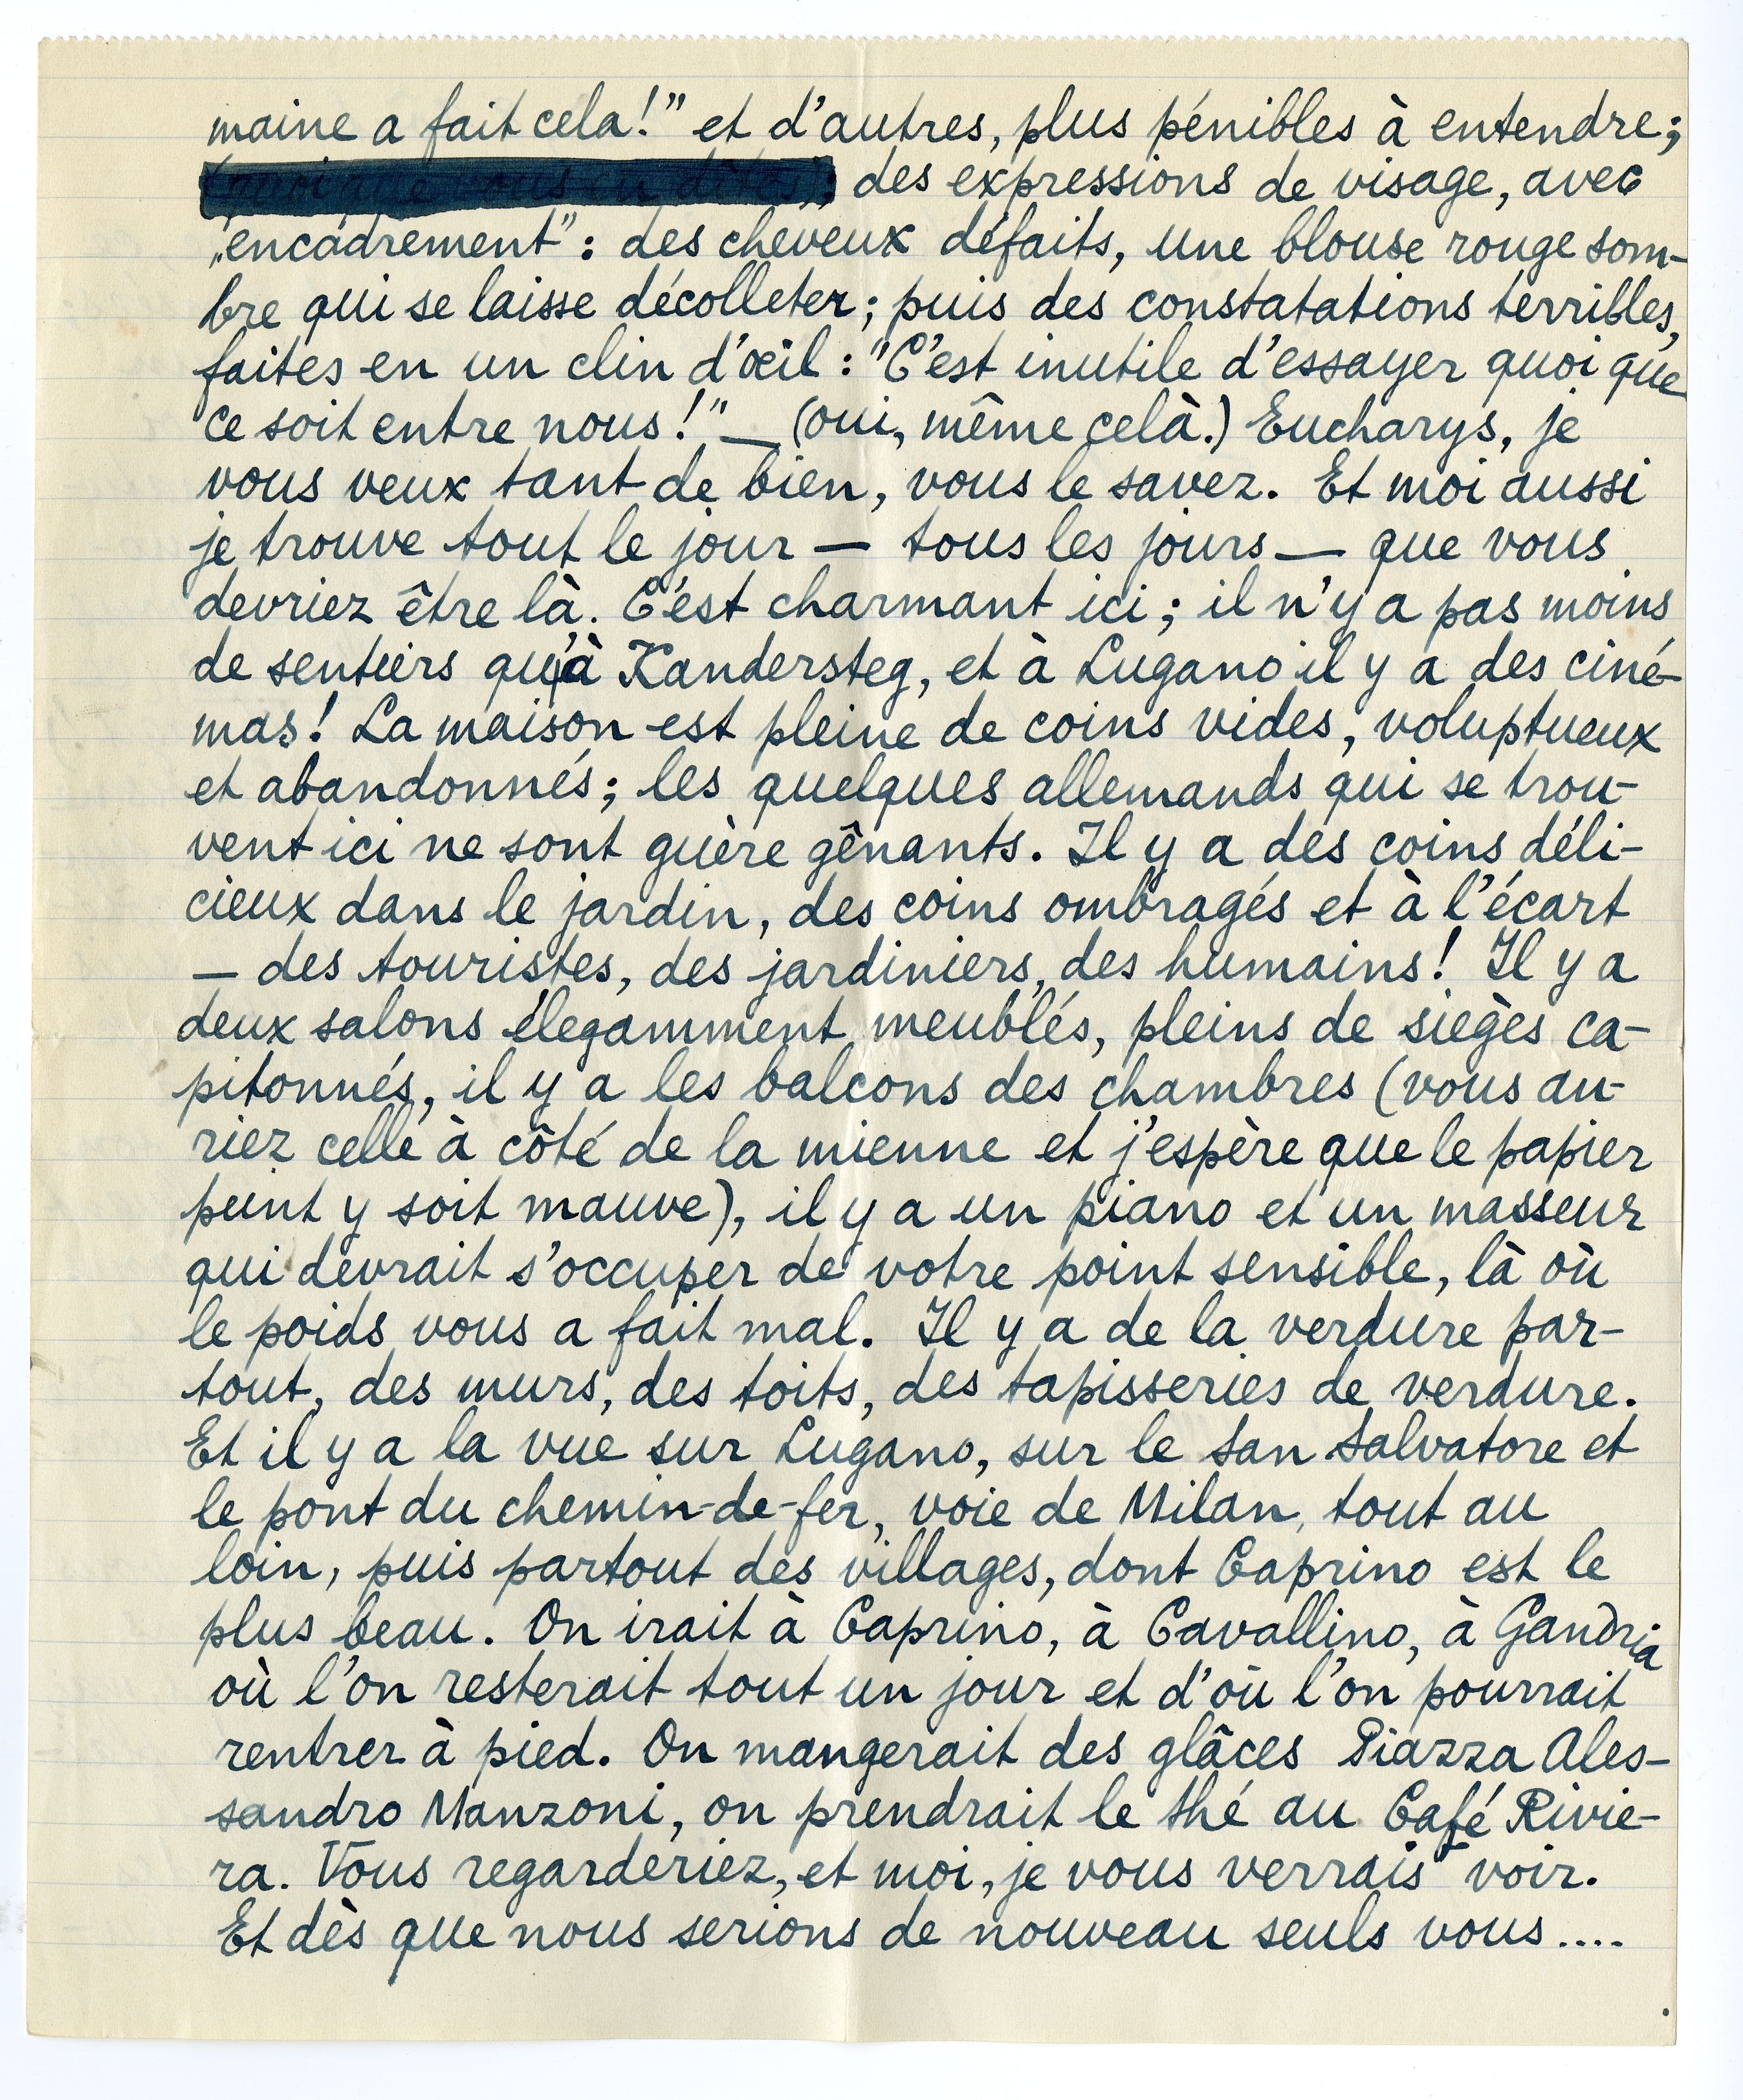 maine a fait cela!” et d'autres, plus pénibles à entendre;
des expressions de visage, avec
„encadrement”: des cheveux défaits, une blouse rouge som-
bre qui se laisse décolleter; puis des constatations terribles,
faites en un clin d'œil: "C'est inutile d'essayer quoi que
ce soit entre nous!" — (oui, même celà.) Eucharys, je
vous veux tant de bien, vous le savez. Et moi aussi
je trouve tout le jour — tous les jours — que vous
devriez être là. C'est charmant ici; il n'y a pas moins
de sentiers qu'à Kandersteg, et à Lugano il y a des ciné-
mas! La maison est pleine de coins vides, voluptueux
et abandonnés; les quelques allemands qui se trou-
vent ici ne sont guère gênants. Il y a des coins déli-
cieux dans le jardin, des coins ombragés et à l'écart
— des touristes, des jardiniers, des humains! Il y a
deux salons élegamment meublés, pleins de sièges ca-
pitonnés, il y a les balcons des chambres (vous au-
riez celle à côté de la mienne et j'espère que le papier
peint y soit mauve), il y a un piano et un masseur
qui devrait s'occuper de votre point sensible, là où
le poids vous a fait mal. Il y a de la verdure par-
tout, des murs, des toits, des tapisseries de verdure.
Et il y a la vue sur Lugano, sur le San Salvatore et
le pont du chemin-de-fer, voie de Milan, tout au
loin, puis partout des villages, dont Caprino est le
plus beau. On irait à Caprino, à Cavallino, à Gandria
où l'on resterait tout un jour et d'où l'on pourrait
rentrer à pied. On mangerait des glâces Piazza Ales-
sandro Manzoni, on prendrait le thé au Café Rivie-
ra. Vous regarderiez, et moi, je vous verrais voir.
Et dès que nous serions de nouveau seuls vous....